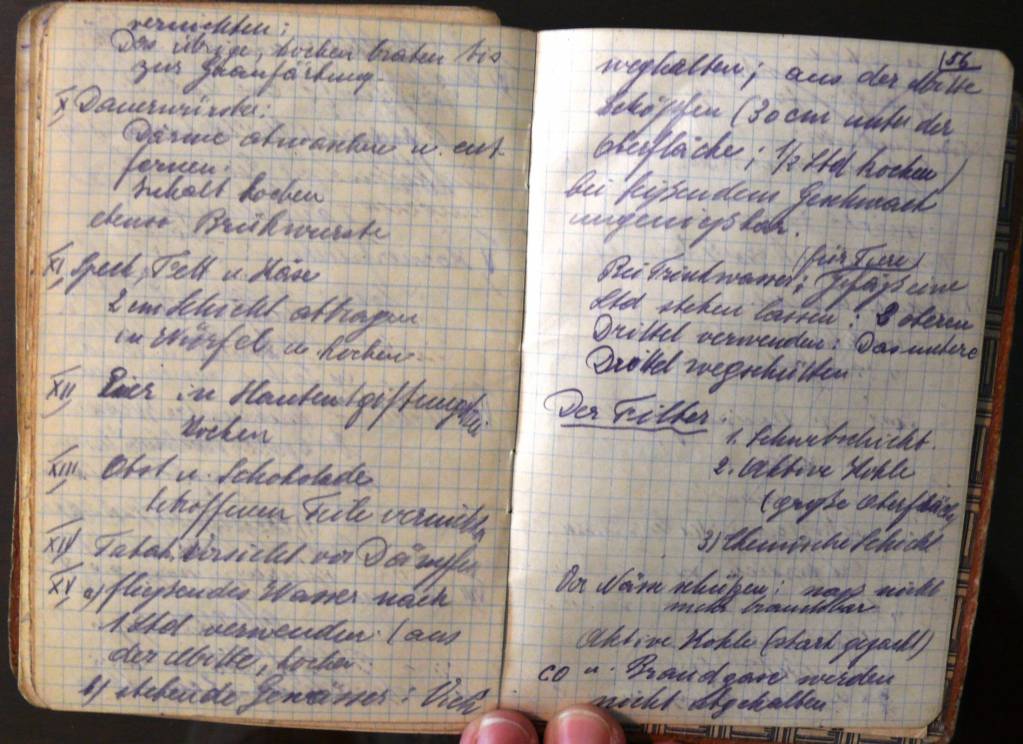 vernichten;
Das übrige, kochen braten bis
zur Braunfärbung.
X, Dauerwürste:
Därme abwaschen u. ent-
fernen.
Inhalt kochen
ebenso Brühwürste
XI, Speck, Fett u. Käse
2 cm Schicht abtragen
in Würfel u. kochen
XII, Eier in
Kochen
XIII, Obst u. Schokolade
Teile vernichten
XIV, Tabak: Vorsicht vor Dämpfen
XV, a) fließendes Wasser nach
1 Std verwenden (aus
der Mitte, kochen.
b) stehende Gewässer: Vieh
56
weghalten; aus der Mitte
schöpfen (30 cm unter der
Oberfläche; 1/2 Std kochen)
bei beißendem Geschmack
ungenießbar.
(für Tiere)
Bei Trinkwasser; Gefäß eine
Std stehen lassen: 2 oberen
Drittel verwenden: Das untere
Drittel wegschütten
Der Filter.
1. Schwebschicht.
2. Aktive Kohle
(große Oberfläche)
3) Chemische Schicht
Vor Nässe schützen; nass nicht
mehr brauchbar
Aktive Kohle (stark gezackt)
CO u. Brandgase werden
nicht abgehalten